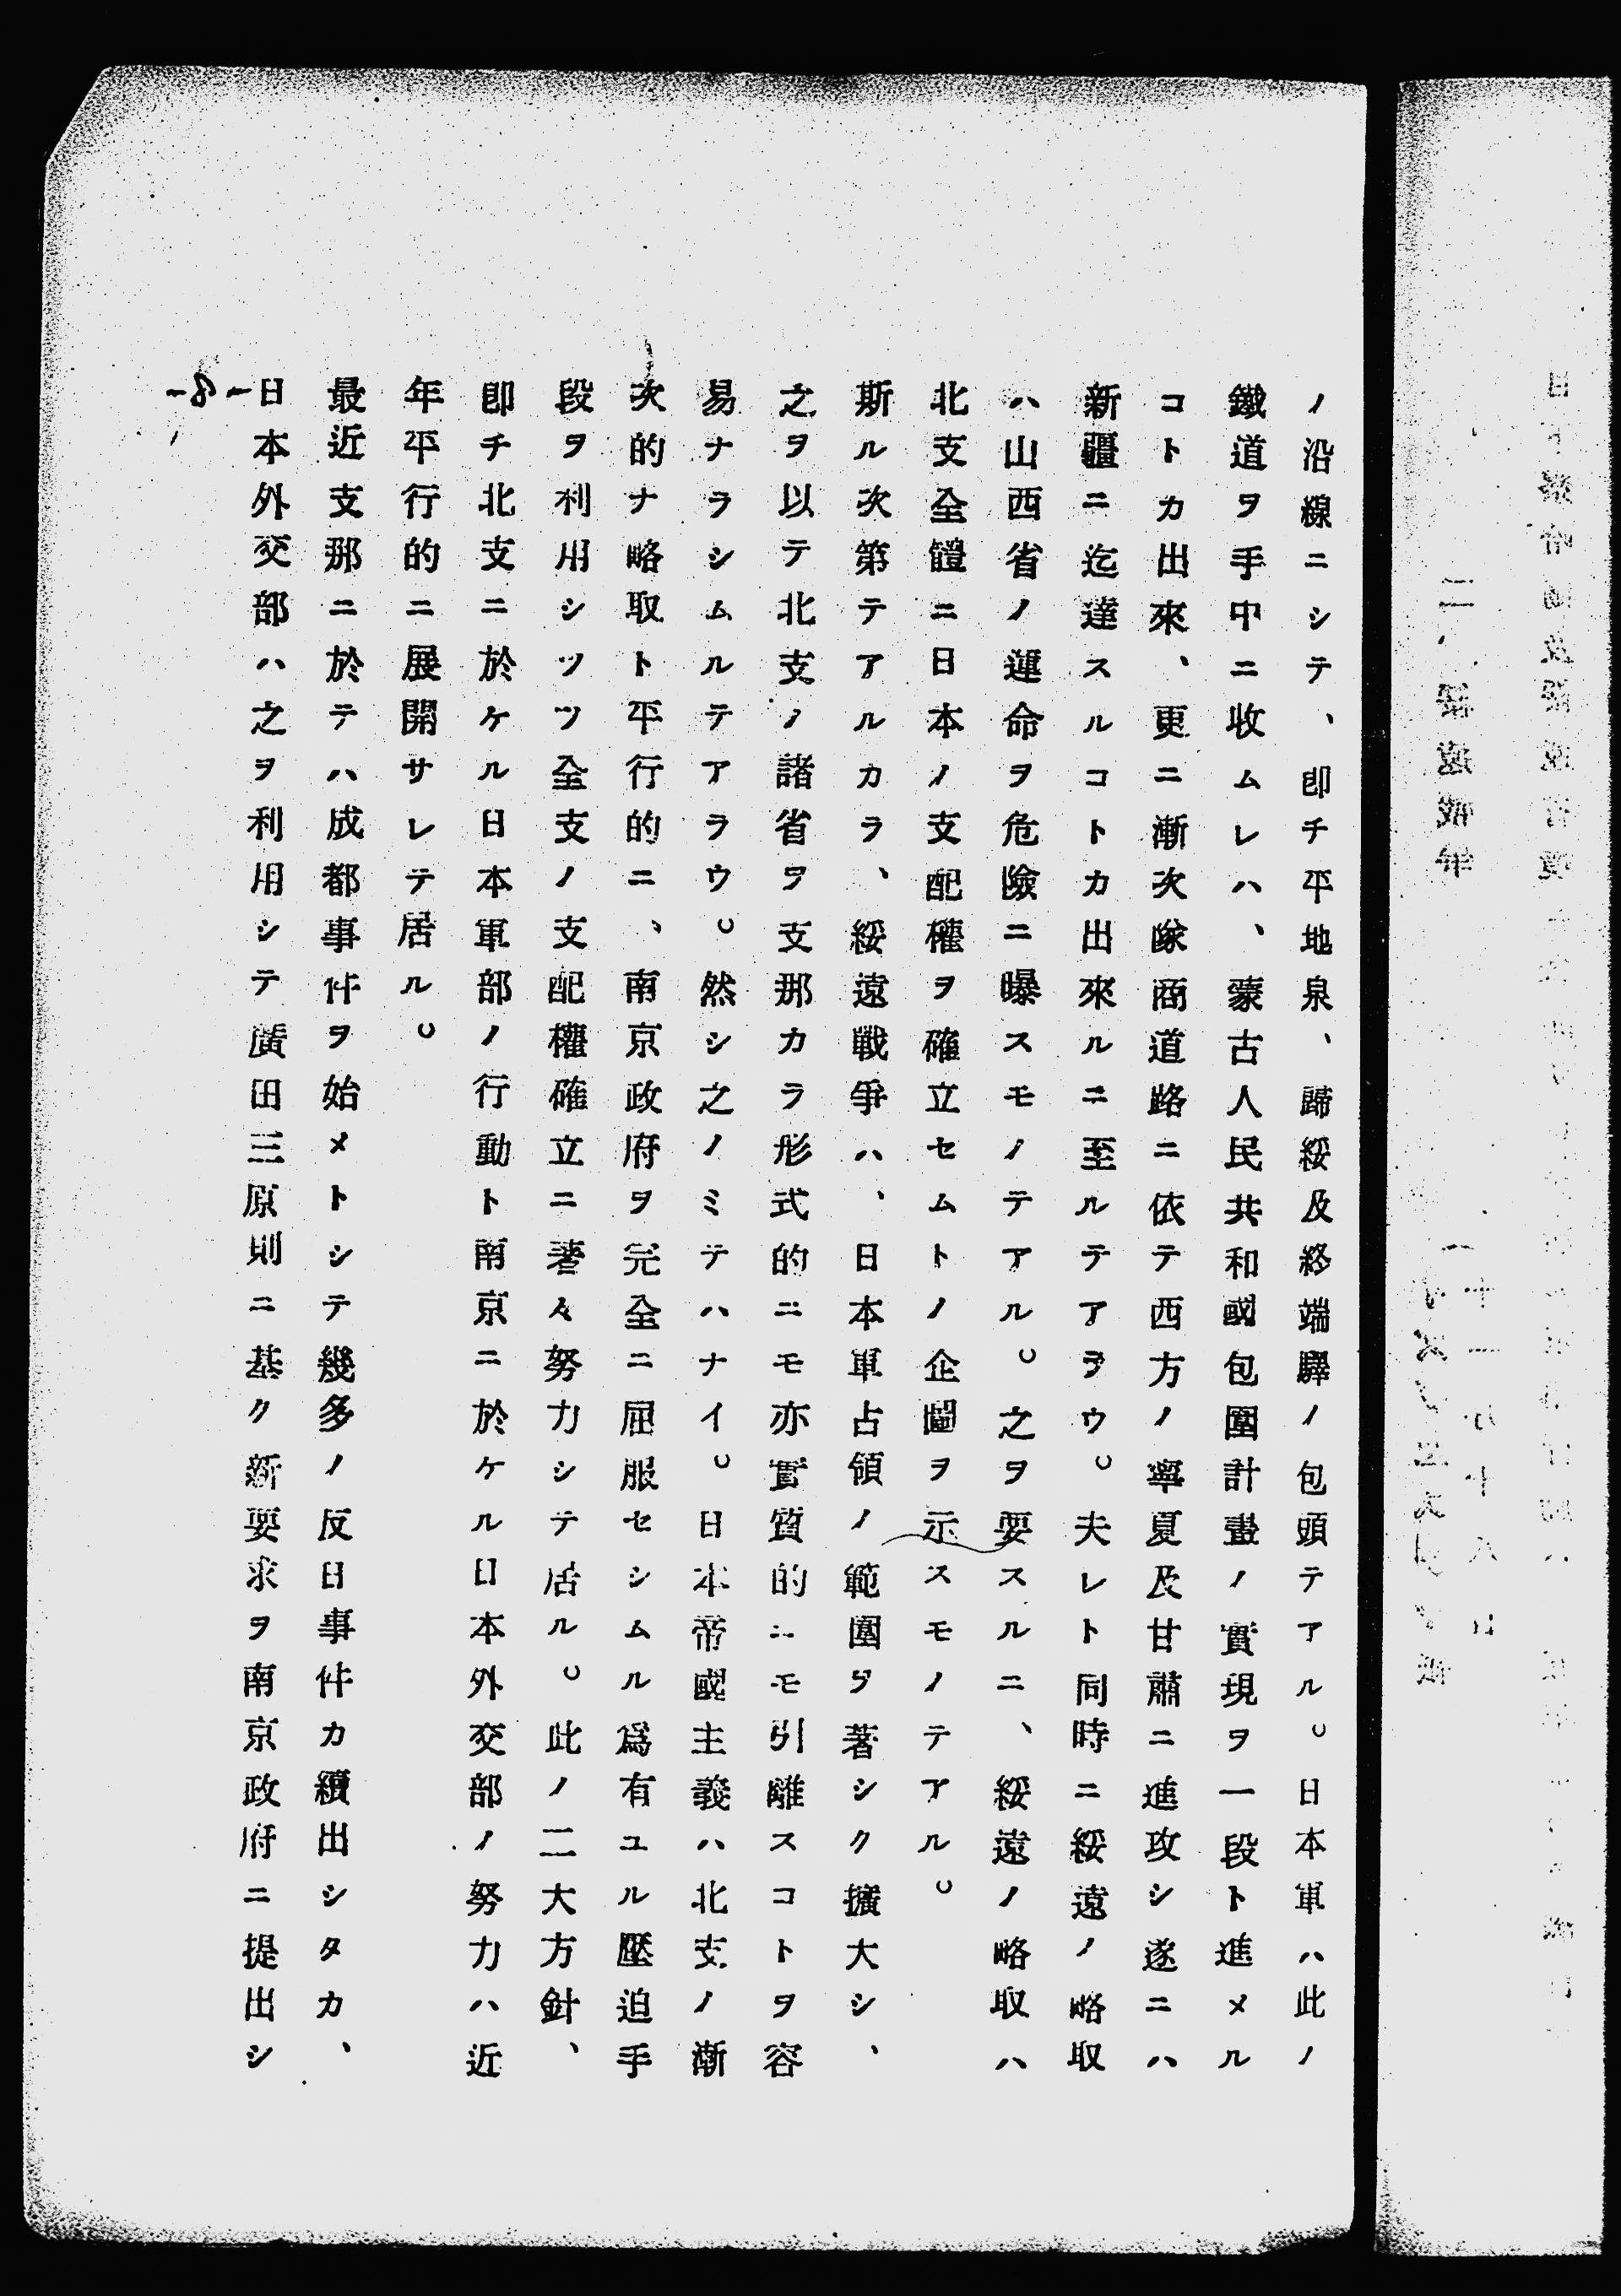 ノ沿線ニシテ、卽チ平地泉、歸綏及終端驛ノ包頭テアル。日本軍ハ此ノ
鐵道ヲ手中ニ收ムレハ、蒙古人民共和國包圍計畫ノ實現ヲ一段ト進メル
コトカ出來、更ニ漸次隊商道路ニ依テ西方ノ寧夏及甘肅ニ進攻シ遂ニハ
新疆ニ迄達スルコトカ出來ルニ至ルテアラウ。夫レト同時ニ綏遠ノ略取
ハ山西省ノ運命ヲ危險ニ曝スモノテアル。之ヲ要スルニ、綏遠ノ略取ハ
北支全體ニ日本ノ支配權ヲ確立セムトノ企圖ヲ示スモノテアル。
斯ル次第テアルカラ、綏遠戰爭ハ、日本軍占領ノ範圍ヲ著シク擴大シ、
之ヲ以テ北支ノ諸省ヲ支那カラ形式的ニモ亦實質的ニモ引離スコトヲ容
易ナラシムルテアラウ。然シ之ノミテハナイ。日本帝國主義ハ北支ノ漸
次的ナ略取ト平行的ニ、南京政府ヲ完全ニ屈服セシムル爲有ユル壓迫手
段ヲ利用シツツ全支ノ支配權確立ニ著々努力シテ居ル。此ノ二大方針、
卽チ北支ニ於ケル日本軍部ノ行動ト南京ニ於ケル日本外交部ノ努力ハ近
年平行的ニ展開サレテ居ル。
最近支那ニ於テハ成都事件ヲ始メトシテ幾多ノ反日事件カ續出シタカ、
日本外交部ハ之ヲ利用シテ廣田三原則ニ基ク新要求ヲ南京政府ニ提出シ
-8-